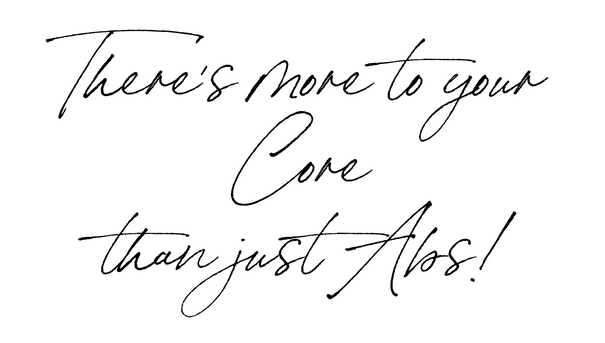 There's more to your
Core
than just Abs!